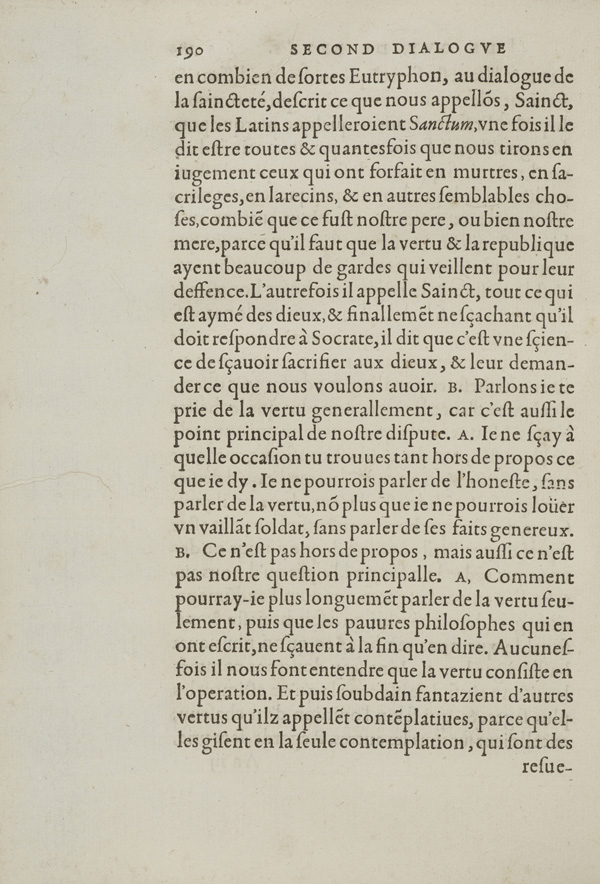 190 SECOND DIALOGVE
en combien de ſortes Eutryphon, au dialogue de
la ſaincteté, deſcrit ce que nous appellõs, Sainct,
que les Latins appelleroient Sanctum, vne fois il le
dit eſtre toutes & quantesfois que nous tirons en
iugement ceux qui ont forfait en murtres, en ſa-
crileges, en larecins, & en autres ſemblables cho-
ſes, combiẽ que ce fuſt noſtre pere, ou bien noſtre
mere, parce qu'il faut que la vertu & la republique
ayent beaucoup de gardes qui veillent pour leur
deffence. L'autrefois il appelle Sainct, tout ce qui
eſt aymé des dieux, & finallemẽt ne ſçachant qu'il
doit reſpondre à Socrate, il dit que c'eſt vne ſçien-
ce de ſçauoir ſacrifier aux dieux, & leur deman-
der ce que nous voulons auoir. B. Parlons ie te
prie de la vertu generallement, car c'eſt auſſi le
point principal de noſtre diſpute. A. Ie ne ſçay à
quelle occaſion tu trouues tant hors de propos ce
que ie dy. Ie ne pourrois parler de l'honeſte, ſans
parler de la vertu, nõ plus que ie ne pourrois loüer
vn vaillãt ſoldat, ſans parler de ſes faits genereux.
B. Ce n'eſt pas hors de propos, mais auſſi ce n'eſt
pas noſtre queſtion principalle. A, Comment
pourray-ie plus longuemẽt parler de la vertu ſeu-
lement, puis que les pauures philoſophes qui en
ont eſcrit, ne ſçauent à la fin qu'en dire. Aucuneſ-
fois il nous font entendre que la vertu conſiſte en
l'operation. Et puis ſoubdain fantazient d'autres
vertus qu'ilz appellẽt contẽplatiues, parce qu'el-
les giſent en la ſeule contemplation, qui ſont des
reſue-